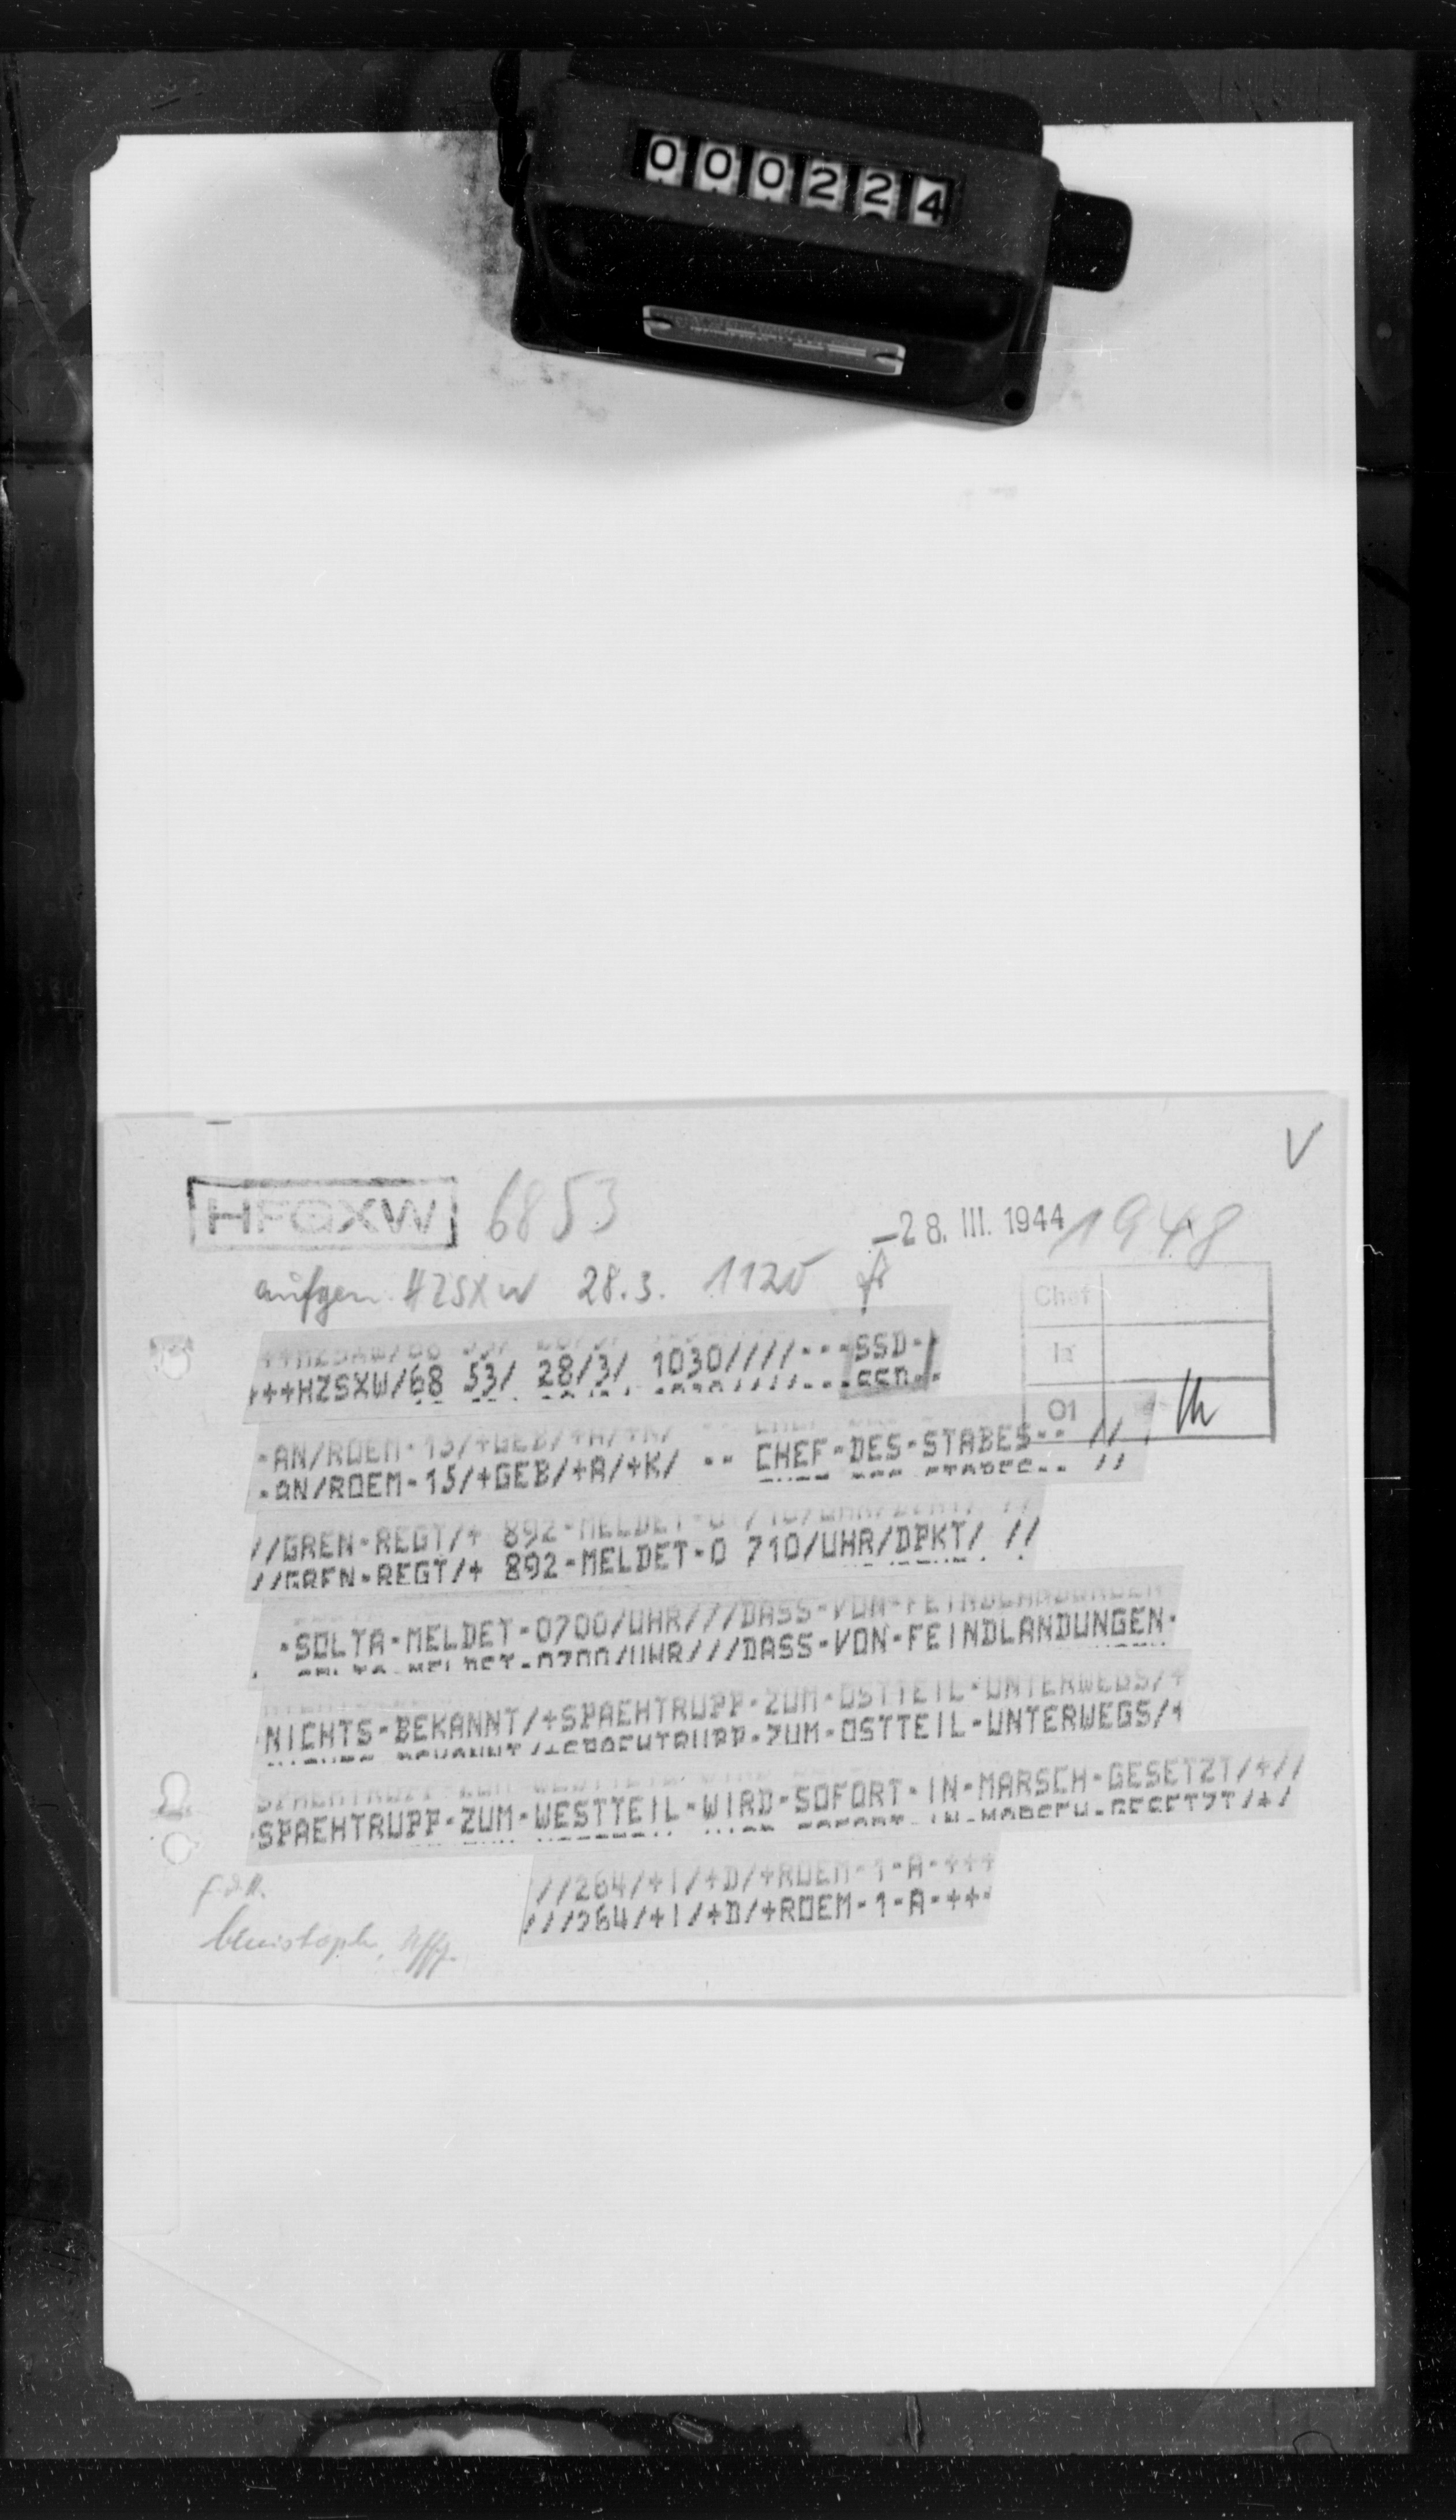 000224
V
HFQXW 6853
-28. III. 1944 1948
aufgen. HZSXW 28.3. 1120
Chef
Ia
O1
+++HZSXW/68 53/ 28/3/ 1030////---SSD-
-AN/ROEM-15/+GEB/+A/+K/ -- CHEF-DES-STABES-- //
//GREN-REGT/+ 892-MELDET-0 710/UHR/DPKT/ //
-SOLTA-MELDET-0700/UHR///DASS-VON-FEINDLANDUNGEN-
NICHTS-BEKANNT/+SPAEHTRUPP-ZUM-OSTTEIL-UNTERWEGS/+
SPAEHTRUPP-ZUM-WESTTEIL-WIRD-SOFORT-IN-MARSCH-GESETZT/+//
///264/+I/+D/+ROEM-1-A-+++
F.d.R.
Uffz.